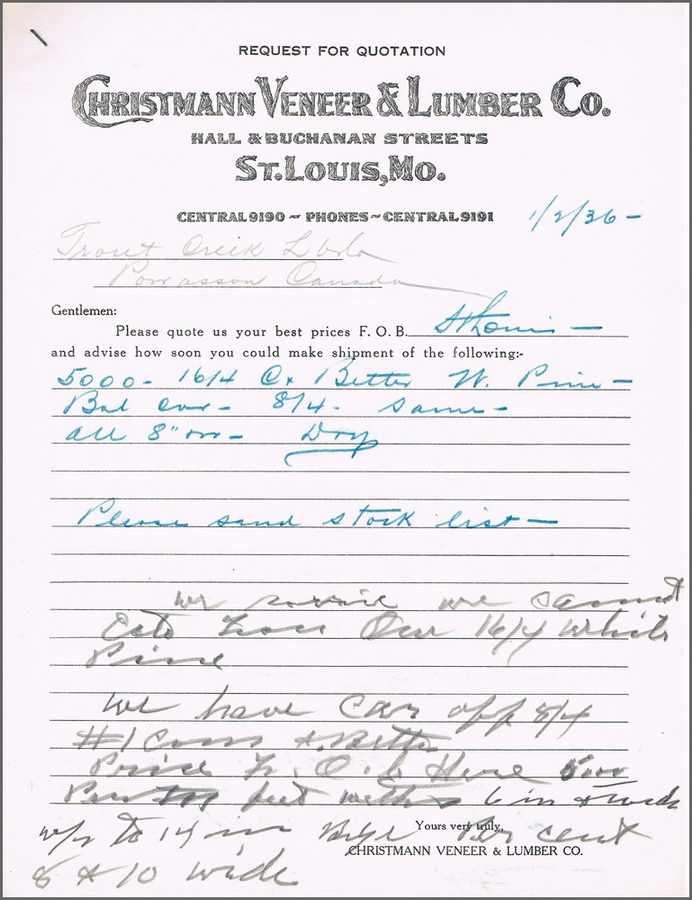 REQUEST FOR QUOTATION
CHRISTMANN VENEER & LUMBER CO.
HALL & BUCHANAN STREETS
ST. LOUIS, MO.
CENTRAL 9190 ~ PHONES ~ CENTRAL 9191
1/2/36 –
Trout Creik
Powasson Canada
Gentlemen:
Please quote us your best prices F. O. B. St Louis –
and advise how soon you could make shipment of the following:-
5000 - 16/4 Better W. Pine –
Bal car - 8/4 - same –
all 8" – Dry
Please send stock list –
we we cannot
Our 16/4 white
Pine
we have car off 8/4
#1 Com & Better
Price F. O. b Here
feet 6 in
to 14 in per cent
Yours very truly,
CHRISTMANN VENEER & LUMBER CO.
8 & 10 wide